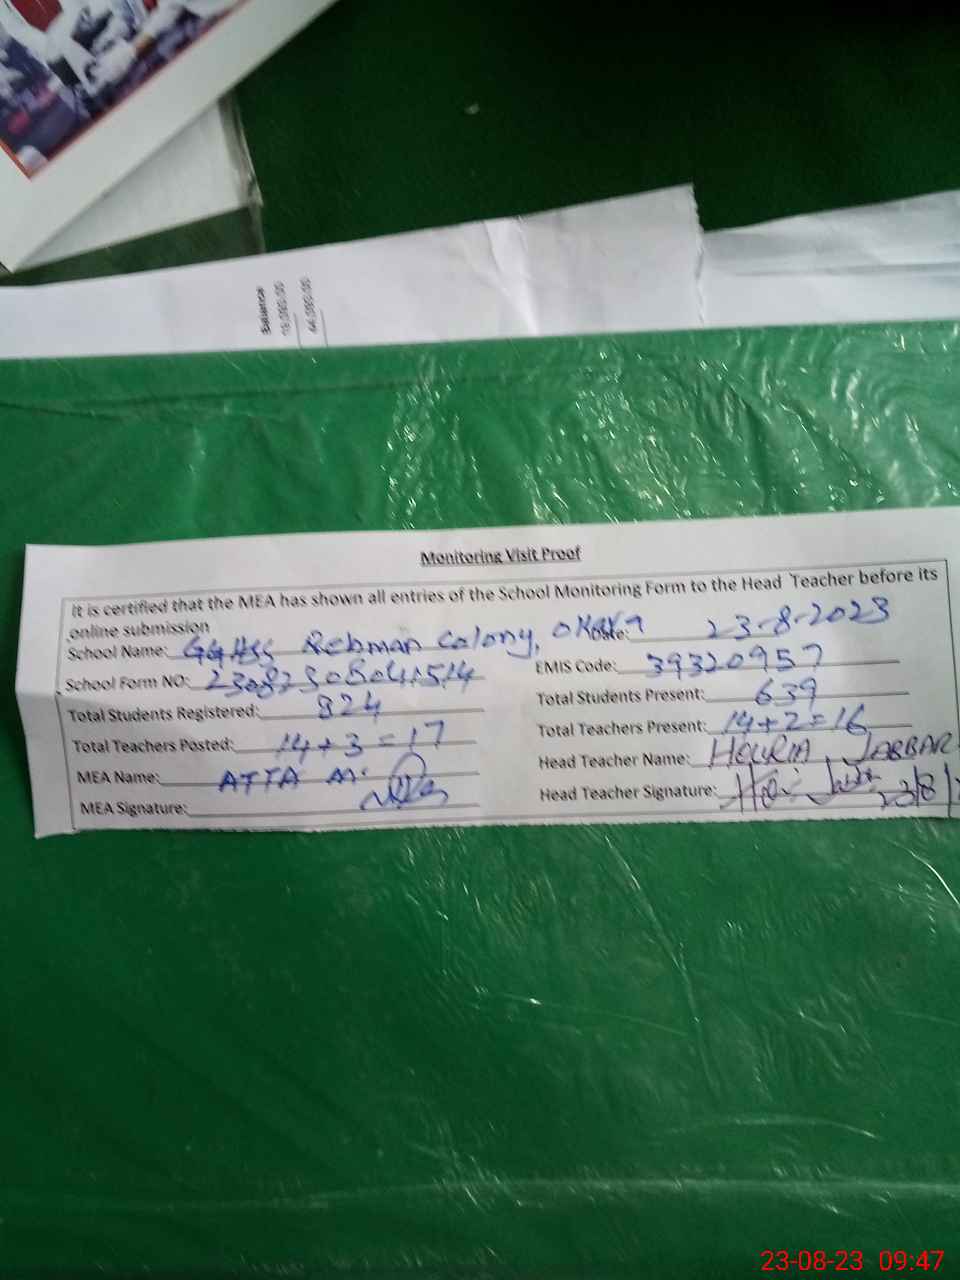 Balance
44,090.00
Monitoring Visit Proof
It is certified that the MEA has shown all entries of the School Monitoring Form to the Head Teacher before its
online submission
School Name: GGHSS Rehman Colony, OKARA Date: 23-8-2023
School Form NO: EMIS Code: 39320957
Total Students Registered: 824 Total Students Present: 639
Total Teachers Posted: 14+3=17 Total Teachers Present: 14+2=16
MEA Name: ATTA M. Head Teacher Name: HOURIA JABBAR
MEA Signature: Head Teacher Signature: 23/8/
23-08-23 09:47